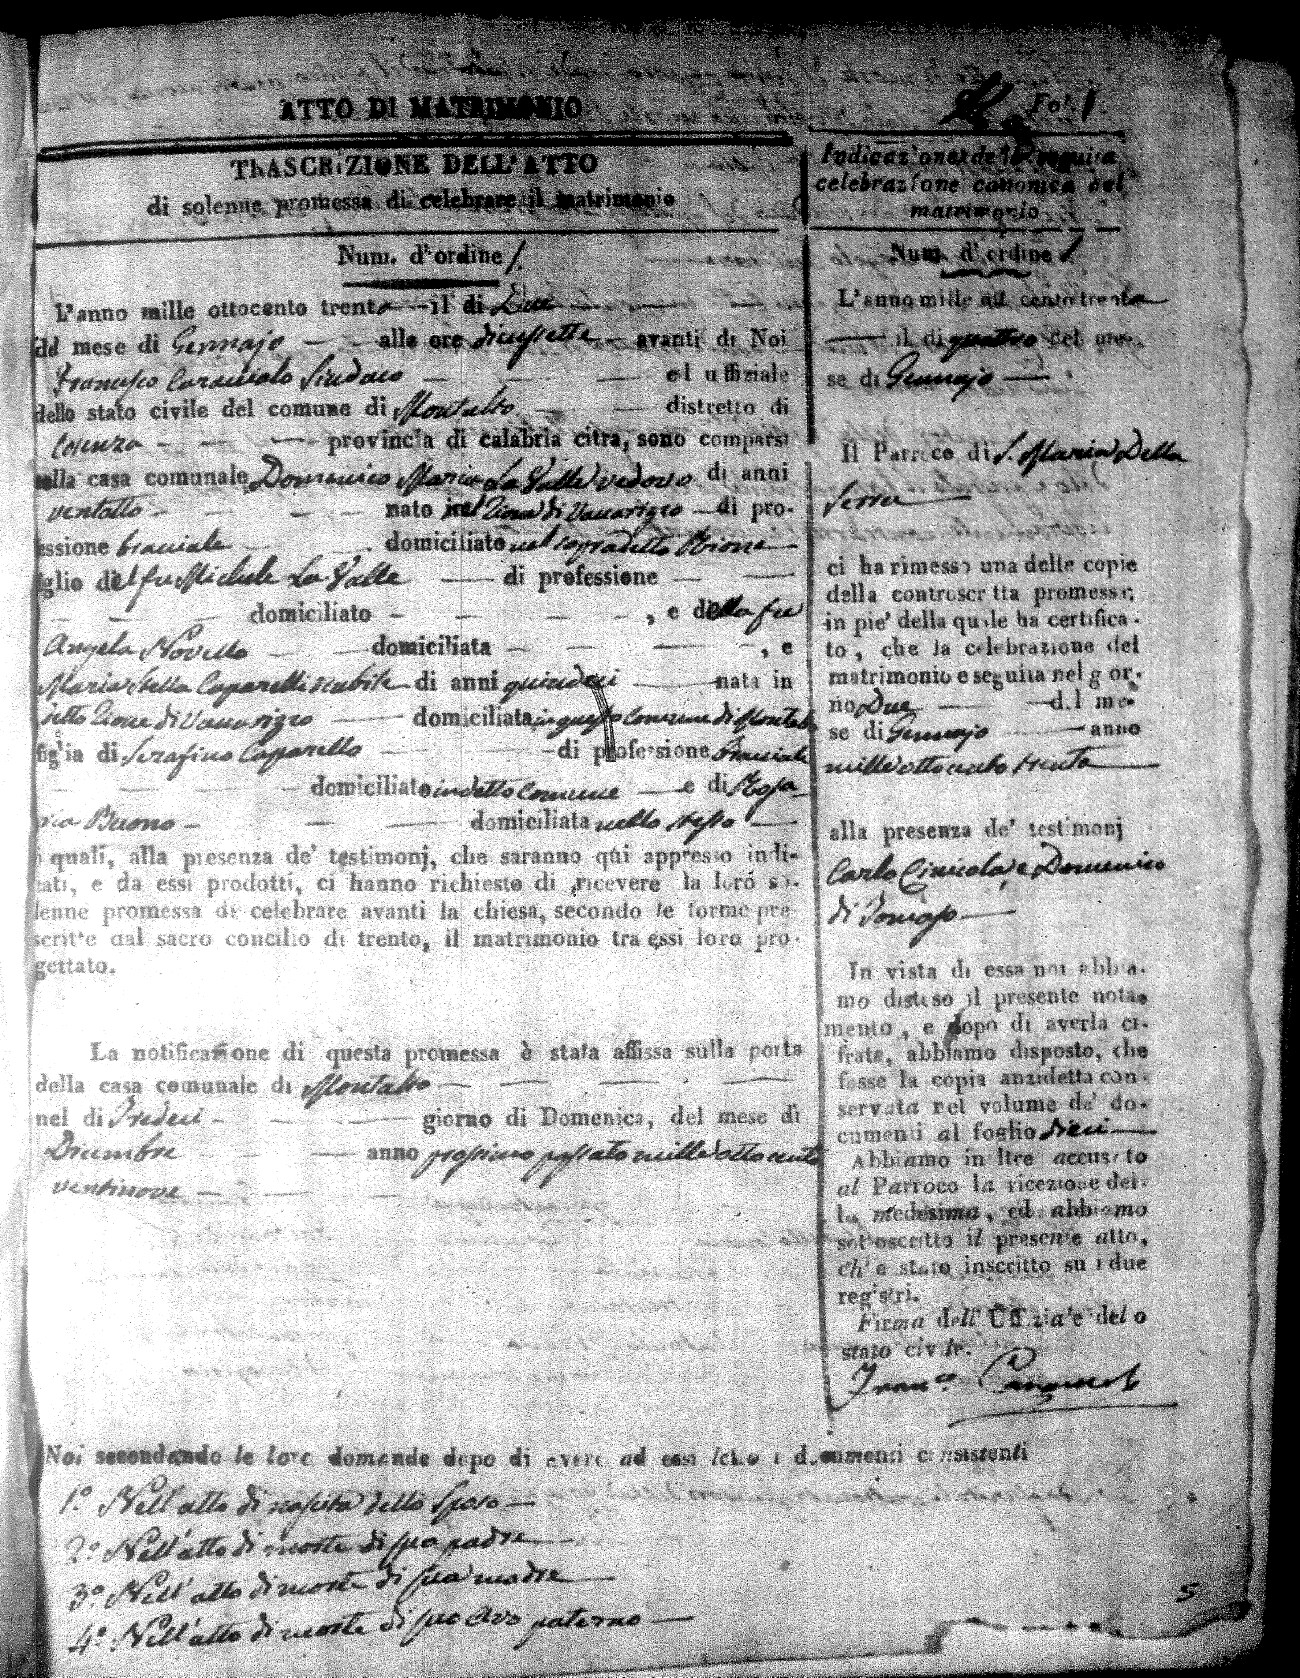 ATTO DI MATRIMONIO
TRASCRIZIONE DELL'ATTO
di solenne promessa di celebrare il matrimonio
Num. d'ordine 1.
L'anno mille ottocento trenta il di Due
del mese di Gennajo alle ore diecissette avanti di Noi
Francesco Caracciolo Sindaco ed uffiziale
dello stato civile del comune di Montalto distretto di
Cosenza provincia di calabria citra, sono comparsi
nella casa comunale Domenico Maria La Valle vedovo di anni
ventotto nato nel Rione di Vaccarizzo di pro-
essione bracciale domiciliato nel sopradetto Rione
glio del fu Michele La Valle di professione
domiciliato , e della fu
Angela Novello domiciliata , e
Maria Stella Caparelli nubile di anni quindeci nata in
detto Rione di Vaccarizzo domiciliata in questo Comune di Montalto
figlia di Serafino Caparello di professione Bracciale
domiciliato in detto Comune e di Rosa
ria Buono domiciliata nello stesso
i quali, alla presenza de' testimonj, che saranno qùi appresso indi-
cati, e da essi prodotti, ci hanno richiesto di ricevere la loro so-
lenne promessa di celebrare avanti la chiesa, secondo le forme pre
scritte dal sacro concilio di trento, il matrimonio tra essi loro pro-
gettato.
La notificazione di questa promessa è stata affissa sulla porta
della casa comunale di Montalto
nel di Tredeci giorno di Domenica, del mese di
Dicembre anno prossimo passato mille ottocento
ventinove
Noi secondando le loro domande dopo di avere ad essi letto i documenti consistenti
1.° Nell'atto di nascita dello Sposo
2.° Nell'atto di morte di suo padre
3.° Nell'atto di morte di sua madre
4.° Nell'atto di morte di suo avo paterno
Fol. 1.
Indicazione della seguita
celebrazione canonica del
matrimonio
Num. d'ordine 1
L'anno mille ott cento trenta
il di quattro del me-
se di Gennajo
Il Parroco di S. Maria Della
Serra
ci ha rimesso una delle copie
della controscritta promessa,
in pie' della quale ha certifica-
to, che la celebrazione del
matrimonio e seguita nel gior-
no Due del me-
se di Gennajo anno
mille ottocento trenta
alla presenza de' testimonj
Carlo Cinicola, e Domenico
di Tomaso
In vista di essa noi abbia-
mo disteso il presente nota-
mento, e dopo di averla ci-
frata, abbiamo disposto, che
fosse la copia anzidetta con-
servata nel volume de' do-
cumenti al foglio dieci
Abbiamo in ltre accusato
al Parroco la ricezione del-
la medesima, ed abbiamo
sottoscritto il presente atto,
ch'e stato inscritto su i due
registri.
Firma dell'Uffiziale dello
stato civile.
Fran.co Caracciolo
5